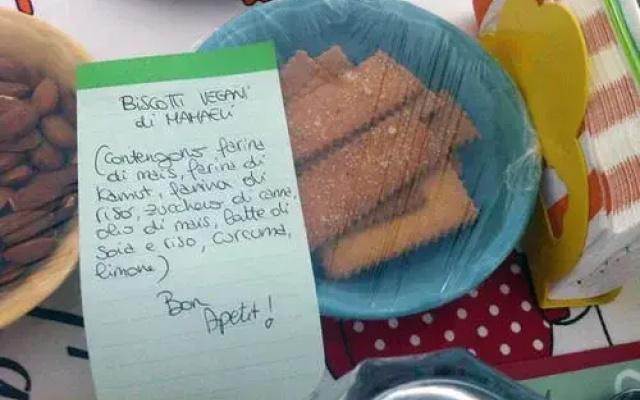 BISCOTTI VEGANI
di MAMAELI
(Contengono farina
di mais, farina di
Kamut, farina di
riso, zucchero di canna,
olio di mais, latte di
soia e riso, curcuma,
limone)
Bon
Apetit!